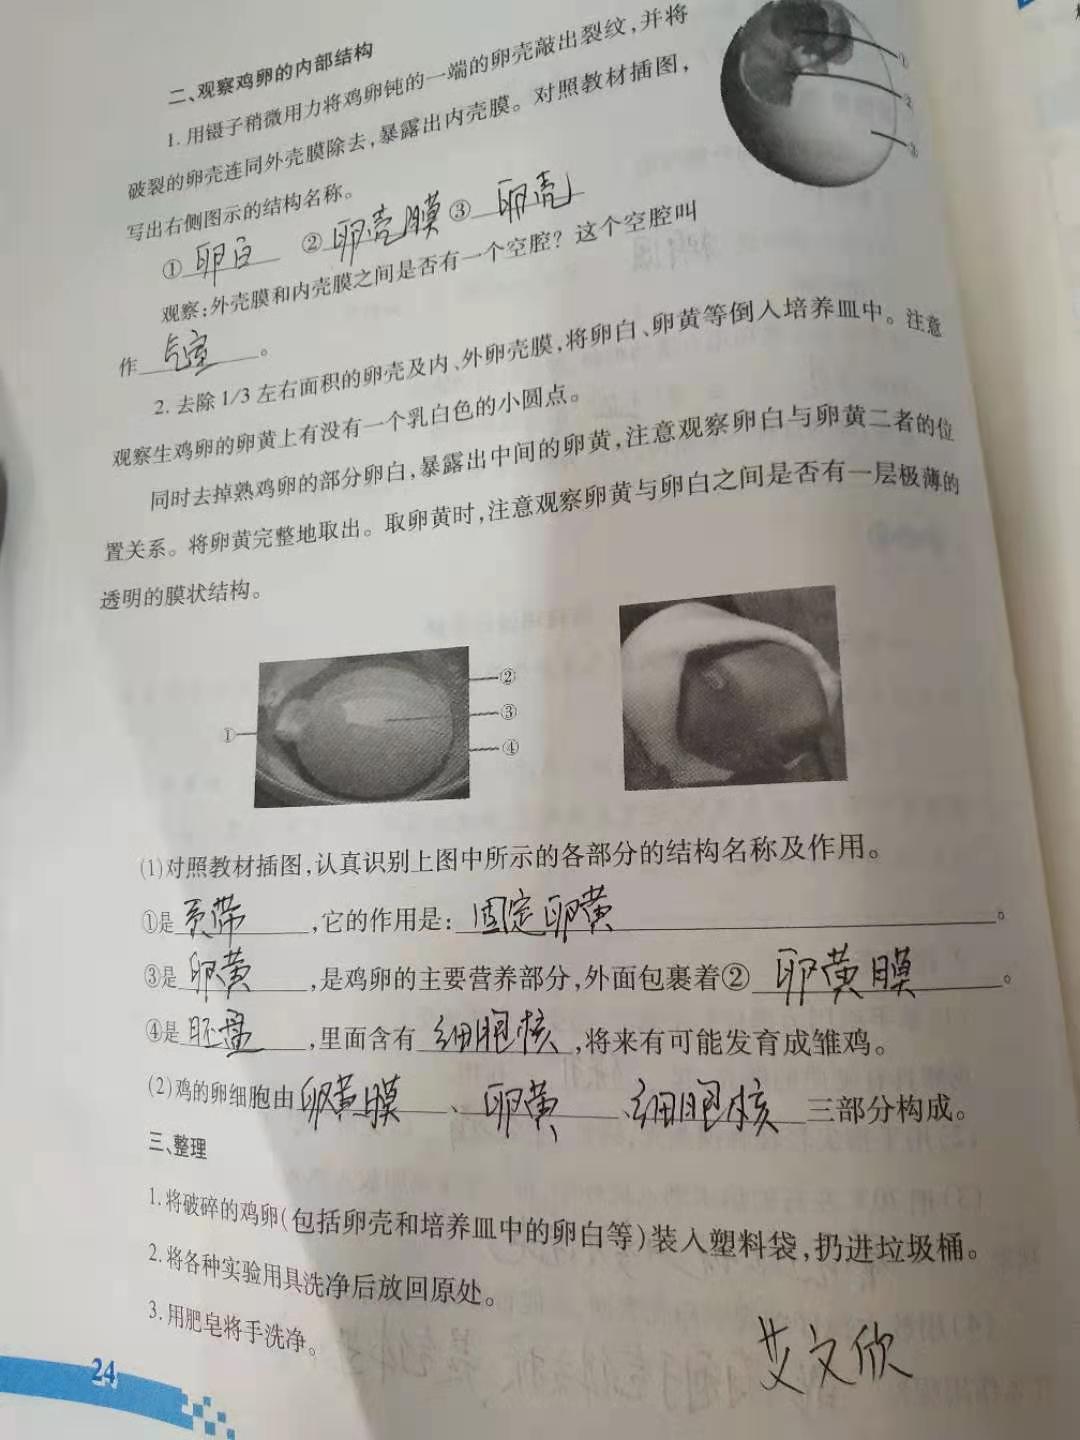 二、观察鸡卵的内部结构
1. 用镊子稍微用力将鸡卵钝的一端的卵壳敲出裂纹,并将
破裂的卵壳连同外壳膜除去,暴露出内壳膜。对照教材插图,
写出右侧图示的结构名称。
① 卵白 ② 卵壳膜 ③ 卵壳
观察:外壳膜和内壳膜之间是否有一个空腔?这个空腔叫
作 气室 。
2. 去除1/3左右面积的卵壳及内、外卵壳膜,将卵白、卵黄等倒入培养皿中。注意
观察生鸡卵的卵黄上有没有一个乳白色的小圆点。
同时去掉熟鸡卵的部分卵白,暴露出中间的卵黄,注意观察卵白与卵黄二者的位
置关系。将卵黄完整地取出。取卵黄时,注意观察卵黄与卵白之间是否有一层极薄的
透明的膜状结构。
①
②
③
①
②
③
④
(1)对照教材插图,认真识别上图中所示的各部分的结构名称及作用。
①是 系带 ,它的作用是: 固定卵黄 。
③是 卵黄 ,是鸡卵的主要营养部分,外面包裹着② 卵黄膜 。
④是 胚盘 ,里面含有 细胞核 ,将来有可能发育成雏鸡。
(2)鸡的卵细胞由 卵黄膜 、 卵黄 、 细胞核 三部分构成。
三、整理
1. 将破碎的鸡卵(包括卵壳和培养皿中的卵白等)装入塑料袋,扔进垃圾桶。
2. 将各种实验用具洗净后放回原处。
3. 用肥皂将手洗净。
艾文欣
24